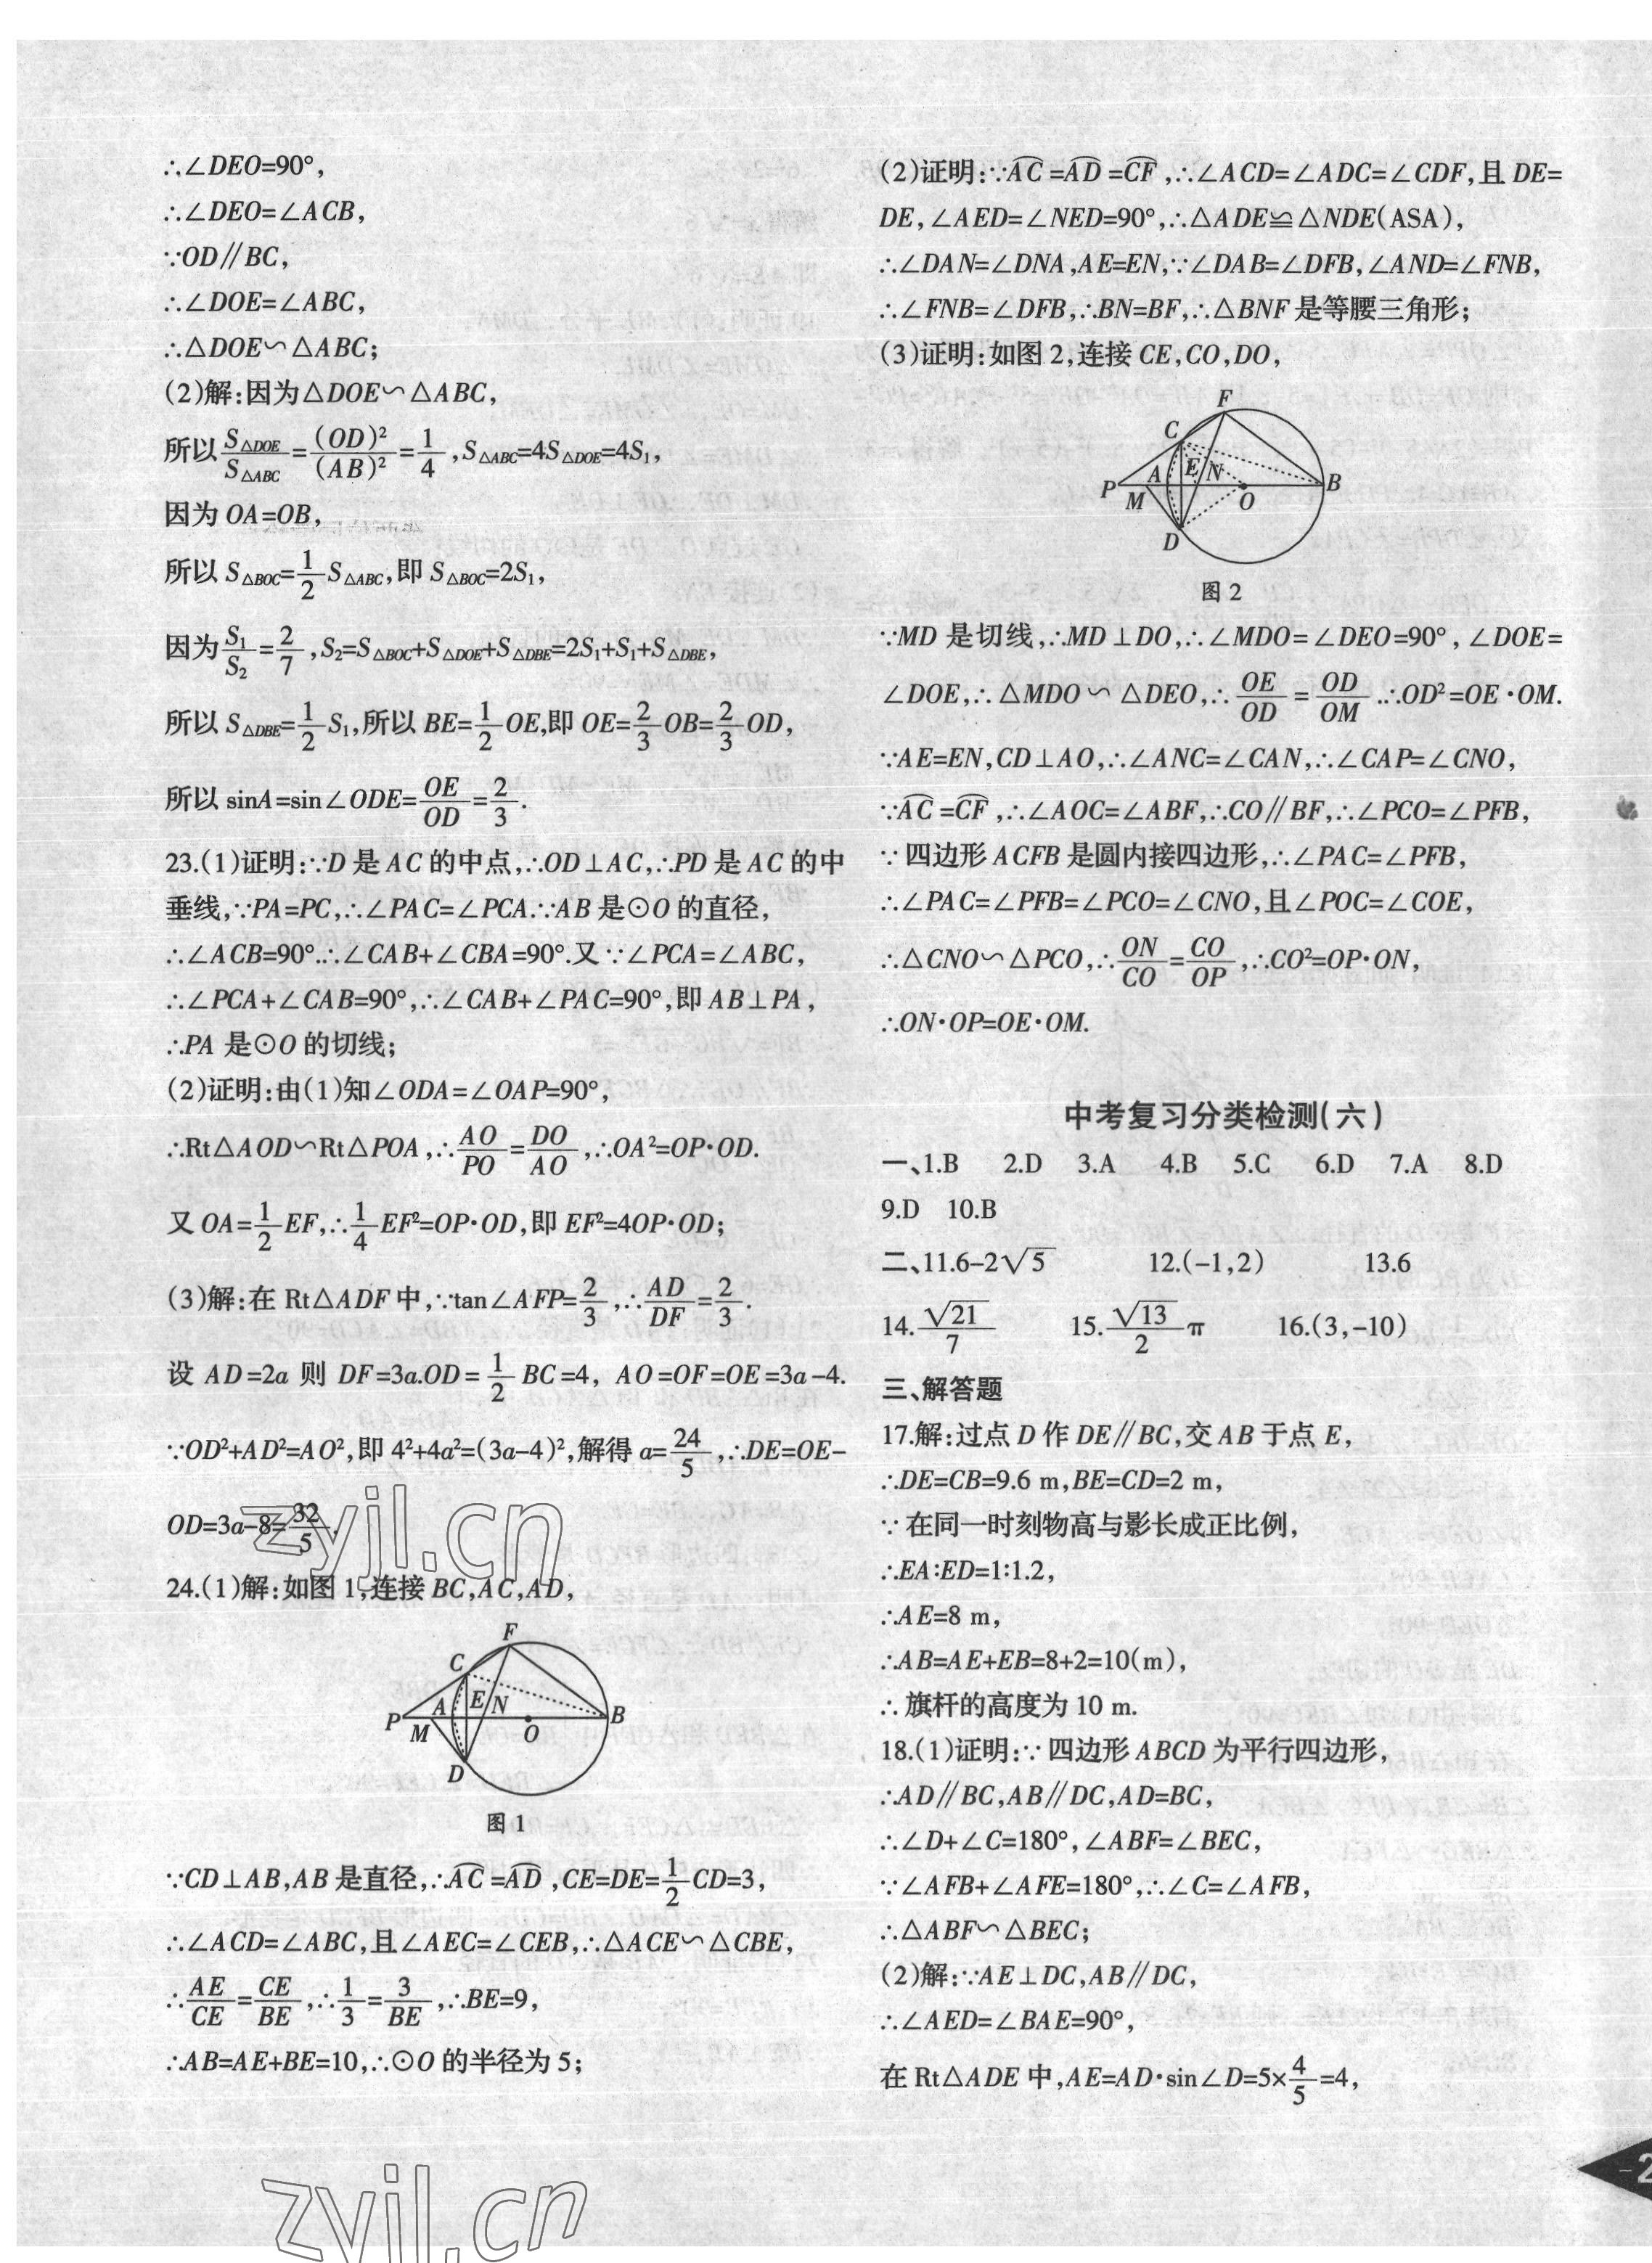 ∴∠DEO=90°,
∴∠DEO=∠ACB,
∵OD∥BC,
∴∠DOE=∠ABC,
∴△DOE∽△ABC;
(2)解:因为△DOE∽△ABC,
所以S△DOE/S△ABC=(OD)²/(AB)²=1/4,S△ABC=4S△DOE=4S₁,
因为OA=OB,
所以S△BOC=1/2S△ABC,即S△BOC=2S₁,
因为S₁/S₂=2/7,S₂=S△BOC+S△DOE+S△DBE=2S₁+S₁+S△DBE,
所以S△DBE=1/2S₁,所以BE=1/2OE,即OE=2/3OB=2/3OD,
所以sinA=sin∠ODE=OE/OD=2/3.
23.(1)证明:∵D是AC的中点,∴OD⊥AC,∴PD是AC的中
垂线,∵PA=PC,∴∠PAC=∠PCA.∵AB是⊙O的直径,
∴∠ACB=90°.∴∠CAB+∠CBA=90°.又∵∠PCA=∠ABC,
∴∠PCA+∠CAB=90°,∴∠CAB+∠PAC=90°,即AB⊥PA,
∴PA是⊙O的切线;
(2)证明:由(1)知∠ODA=∠OAP=90°,
∴Rt△AOD∽Rt△POA,∴AO/PO=DO/AO,∴OA²=OP·OD.
又OA=1/2EF,∴1/4EF²=OP·OD,即EF²=4OP·OD;
(3)解:在Rt△ADF中,∵tan∠AFP=2/3,∴AD/DF=2/3.
设AD=2a则DF=3a.OD=1/2BC=4,AO=OF=OE=3a-4.
∵OD²+AD²=AO²,即4²+4a²=(3a-4)²,解得a=24/5,∴DE=OE-
OD=3a-8=32/5.
24.(1)解:如图1,连接BC,AC,AD,
F
C
E N
A
P M O B
D
图1
∵CD⊥AB,AB是直径,∴A͡C=A͡D,CE=DE=1/2CD=3,
∴∠ACD=∠ABC,且∠AEC=∠CEB,∴△ACE∽△CBE,
∴AE/CE=CE/BE,∴1/3=3/BE,∴BE=9,
∴AB=AE+BE=10,∴⊙O的半径为5;
(2)证明:∵A͡C=A͡D=C͡F,∴∠ACD=∠ADC=∠CDF,且DE=
DE,∠AED=∠NED=90°,∴△ADE≌△NDE(ASA),
∴∠DAN=∠DNA,AE=EN,∵∠DAB=∠DFB,∠AND=∠FNB,
∴∠FNB=∠DFB,∴BN=BF,∴△BNF是等腰三角形;
(3)证明:如图2,连接CE,CO,DO,
F
C
E N
A
P M O B
D
图2
∵MD是切线,∴MD⊥DO,∴∠MDO=∠DEO=90°,∠DOE=
∠DOE,∴△MDO∽△DEO,∴OE/OD=OD/OM.∴OD²=OE·OM.
∵AE=EN,CD⊥AO,∴∠ANC=∠CAN,∴∠CAP=∠CNO,
∵A͡C=C͡F,∴∠AOC=∠ABF,∴CO∥BF,∴∠PCO=∠PFB,
∵四边形ACFB是圆内接四边形,∴∠PAC=∠PFB,
∴∠PAC=∠PFB=∠PCO=∠CNO,且∠POC=∠COE,
∴△CNO∽△PCO,∴ON/CO=CO/OP,∴CO²=OP·ON,
∴ON·OP=OE·OM.
中考复习分类检测(六)
一、1.B 2.D 3.A 4.B 5.C 6.D 7.A 8.D
9.D 10.B
二、11.6-2√5 12.(-1,2) 13.6
14.√21/7 15.√13/2π 16.(3,-10)
三、解答题
17.解:过点D作DE∥BC,交AB于点E,
∴DE=CB=9.6 m,BE=CD=2 m,
∵在同一时刻物高与影长成正比例,
∴EA∶ED=1∶1.2,
∴AE=8 m,
∴AB=AE+EB=8+2=10(m),
∴旗杆的高度为10 m.
18.(1)证明:∵四边形ABCD为平行四边形,
∴AD∥BC,AB∥DC,AD=BC,
∴∠D+∠C=180°,∠ABF=∠BEC,
∵∠AFB+∠AFE=180°,∴∠C=∠AFB,
∴△ABF∽△BEC;
(2)解:∵AE⊥DC,AB∥DC,
∴∠AED=∠BAE=90°,
在Rt△ADE中,AE=AD·sin∠D=5×4/5=4,
zyjl.cn
zyjl.cn